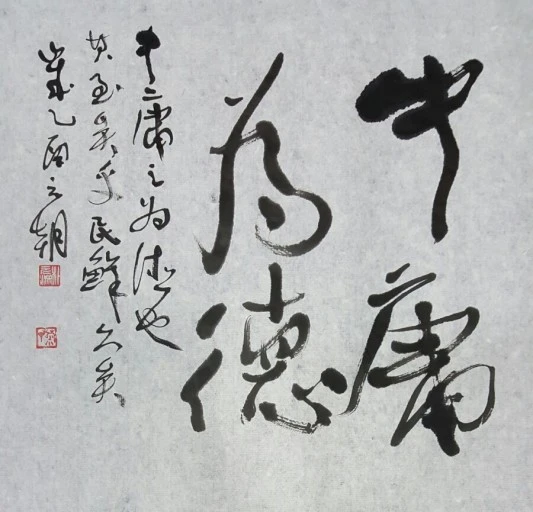 中庸
為德
中庸之為德也
其至矣乎民鮮久矣
歲乙酉之朝